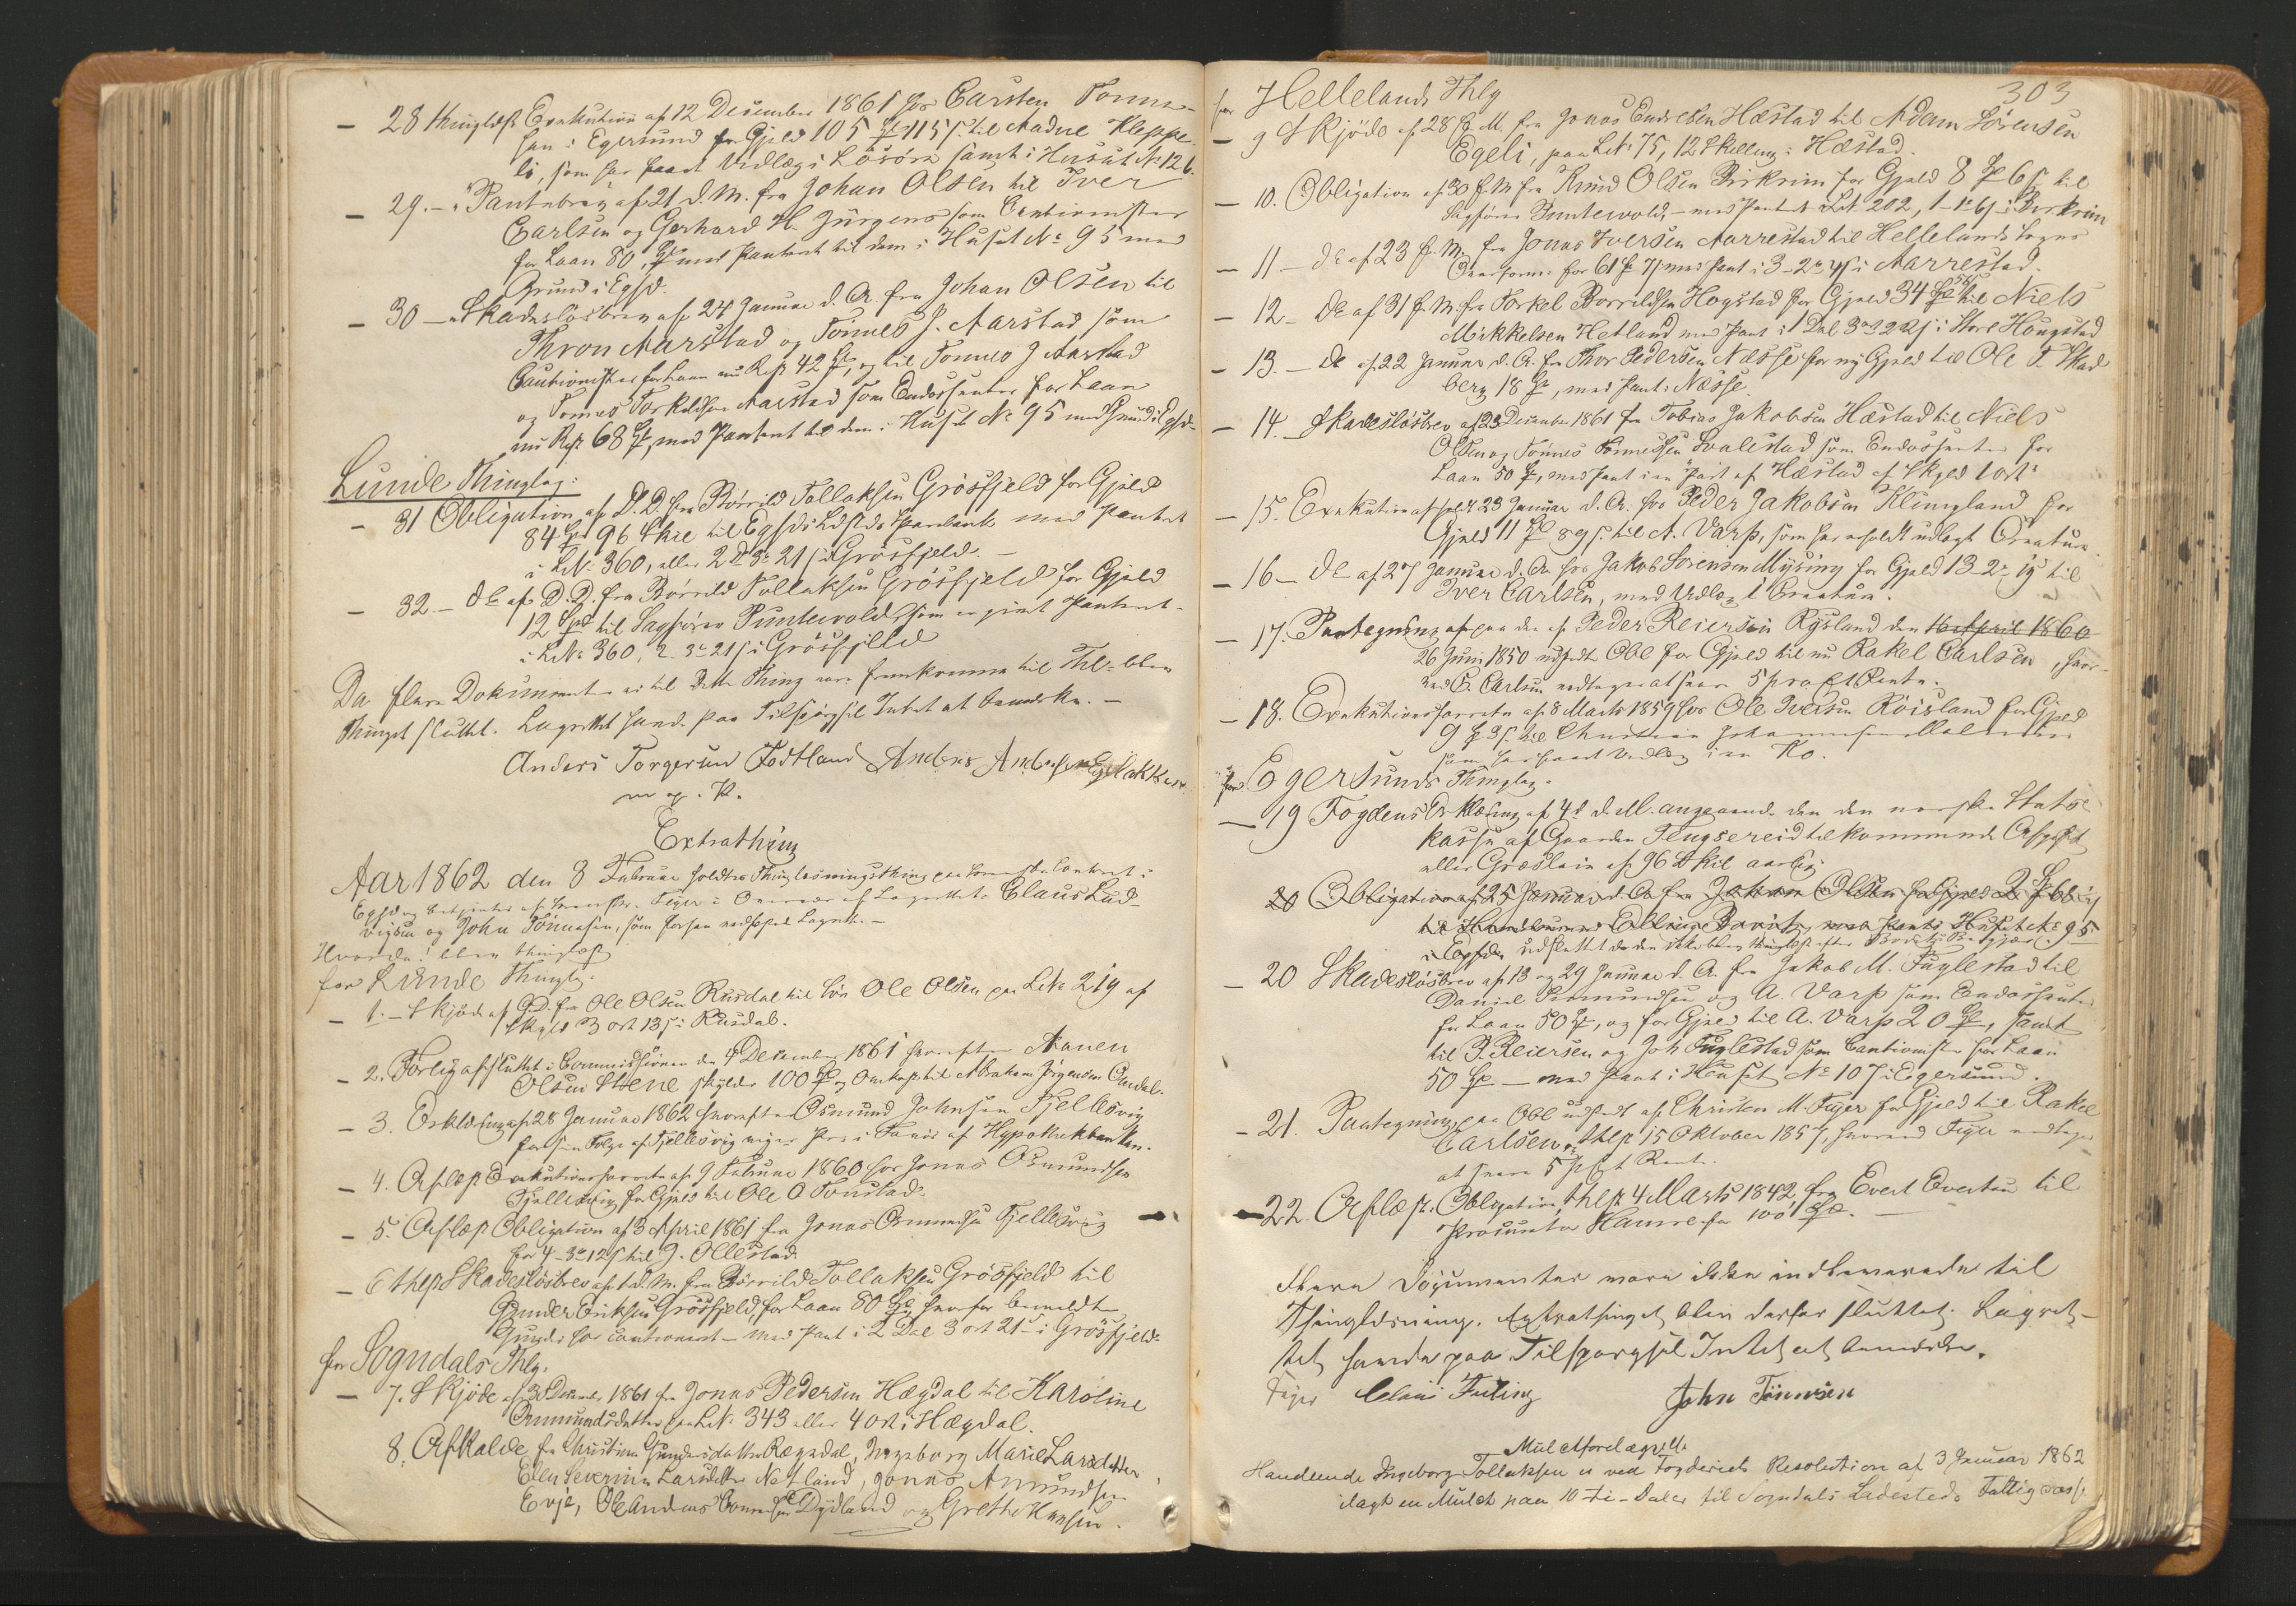 - 28 thinglæst Exekution af 12 December 1861 hos Carsten Tonnes-
sen i Egersund for Gjeld 105 Spd 115 s. til Aadne Kleppe-
li, som har faaet Udlæg i Løsøre samt i Huset No 126.
- 29. - " Pantebrev af 21 d. M. fra Johan Olsen til Iver
Carlsen og Gerhard H. Jürgens som Cautionister
for Laan 80 Spd med Panteret til dem i Huset No 95 med
Grund i Egsd.
- 30 - " Skadesløsbrev af 24 Januar d. A. fra Johan Olsen til
Thron Aarstad og Tönnes J. Aarstad som
Cautionister for Laan nu Rest 42 Spd, og til Tonnes J Aarstad
og Tonnes Torkildsen Aarstad som Endossenter for Laan
nu Rest 68 Spd, med Panteret til dem i Huset No 95 med Grund i Egsd.
Lunde Thinglag:
- 31 Obligation af D. D. fra Börrild Tollaksen Grösfjeld for Gjeld
84 Spd 96 Skil til Egsds Ldsteds Sparebank med Panteret
i LNo 360, eller 2 D 3 o 21 s i Grösfjeld. -
- 32. - Do af D. D. fra Börrild Tollaksen Grösfjeld for Gjeld
12 Spd til Sagfører Puntervold, som er givet Panteret
i LNo 360, 2. 3 o 21 s i Grösfjeld
Da flere Dokumenter ei til dette Thing vare fremkomne til Thl. blev
Thinget sluttet. Lagrettet havde paa Tilspørgsel Intet at bemærke. -
Anders Torgersen Fodtland Anders Andersen Eelakker
m. p. P.
Extrathing
Aar 1862 den 8 Februar holdtes Thinglæsningsthing paa Sorenskr. Contoret i
Egsd og betjentes af Sorenskr. Feyer i Overvær af Lagrettet Claus Lud-
vigsen og John Tönnesen, som forhen edfæstet Lagrett. -
Hvorda! blev thinglæst
for Lunde Thingl.
- 1. - Skjöde af D. D. fra Ole Olsen Rusdal til Søn Ole Olsen paa LNo 219 af
Skyld 3 ort 13 s i Rusdal.
- 2. Forlig afsluttet i Commissionen den 4 December 1861 hvorefter Aanen
Olsen Steene skylder 100 Spd og Omkost. til Abraham Jörgensen Omdal.
- 3. Erklæring af 28 Januar 1862 hvorefter Osmund Johnsen Fjellesvig
for sin Folge af Fjellesvig viger Pri. i Favör af Hypothekbanken.
- 4. Aflæst Exekutionsforretn. af 9 Februar 1860 hos Jonas Osmundsen
Fjellesvig for Gjeld til Ole O Tonstad.
- 5. Aflæst Obligation af 3 April 1861 fra Jonas Osmundsen Fjellesvig
for 4 - 3 o 12 s til J. Ollestad.
- 6 thlæst Skadesløsbrev af 1 d. M. fra Börrild Tollaksen Grösfjeld til
Gunder Eriksen Grösfjeld, for Laan 80 Spd hvorfor bemeldte
Gunder har cautioneret - med Pant i 2 Dal 3 ort 21 - i Grösfjeld.
for Sogndals Thlg.
- 7. Skjöde af 30 Decemb. 1861 fra Jonas Pedersen Hægdal til Karoline
Osmundsdatter paa LNo 343 eller 4 ort i Hægdal.
8. Afkald fra Christine Gundersdatter Rægedal, Ingeborg Marie Larsdatter,
Ellen Severine Larsdatter Netland, Jonas Amundsen
Evje, Ole Andreas Tonnesen Dydland og Grethe Hansen.
303
for Hellelands Thlg
- 9 Skjöde af 28 f. M. fra Jonas Endresen Hæstad til Adam Sörensen
Egeli, paa LNo 75, 12 Skilling i Hæstad.
- 10. Obligation af 30 f. M. fra Knud Olsen Birkrim for Gjeld 8 Spd 6 s. til
Sagfører Puntervold, - med Panteret i LNo 202, 1 - 1 o 6 s i Birkrim
- 11 - Do af 23 f. M. fra Jonas Iversen Aarrestad til Hellelands Sogns
for 61 Spd 7 s med Pant i 3 - 2 o 4 s i Aarrestad.
- 12 - Do af 31 f. M. fra Torkel Borrildsen Hogstad for Gjeld 34 Spd til Niels
Mikkelsen Hetland med Pant i 1 Dal 3 o 22 s i Store Hougstad
- 13. - Do af 22 Januar d. A. fra Thor Pedersen Næsse for ny Gjeld til Ole T. Skad
berg 18 Spd, med Pant i Næsse.
- 14. Skadesløsbrev af 23 December 1861 fra Tobias Jakobsen Hæstad til Niels
Olsen og Tönnes Tonnessen Svalestad som Endossenter for
Laan 50 Spd, med Pant i en Part af Hæstad af Skyld 1 ort
- 15. Exekution afholdt 23 Januar d. A. hos Peder Jakobsen Klungland for
Gjeld 11 Spd 89 s. til A. Varp, som har erholdt udlagt Creature.
- 16 - Do af 27 Januar d. A. hos Jakob Sörensen Mysing for Gjeld 13 - 2 o 19 til
Iver Carlsen, med Udlæg i Creature.
- 17. Paategning af paa den af Peder Reiersen Rysland den 16 April 1860
26 Juni 1850 udstedte Obl for Gjeld til nu Rakel Carlsen, hvor-
ved E. Carlsen vedtager at svare 5 pro Ct Rente.
- 18. Exekutionsforretn. af 8 Marts 1859 hos Ole Iversen Röisland for Gjeld
9 Spd 3 s. til Christian Johannessen
som har faaet Udlæg i en Ko.
for Egersunds Thinglag.
- 19 Fogdens Erklæring af 4de d. M. angaaende den den norske Stats-
kasse af Gaarden Tengsereid tilkommende Afgift
eller Græsleie af 96 Skil aarlig.
20 Obligation af 25 Januar d. A. fra Johan Olsen for Gjeld
til med Pant i Huset No 95
i Egsd.
- 20 Skadesløsbrev af 13 og 29 Januar d. A. fra Jakob M. Fuglestad til
Daniel Osmundsen og A. Varp som Endossenter
for Laan 50 Spd, og for Gjeld til A. Varp 20 Spd, samt
til P. Reiersen og Joh Fuglestad som Cautionister for Laan
50 Spd - med Pant i Huset No 107 i Egersund.
- 21. Paategning paa Obl udstedt af Christen M. Feyer for Gjeld til Rakel
Carlsen, thlæst 15 Oktober 1857, hvorved Feyer vedtager
at svare 5 p Ct Rente.
- 22. Aflæst Obligation, thlæst 4 Marts 1842 fra Evert Evertsen til
Procurator Hamre for 100 Spd. -
Flere Documenter vare ikke indleverede til
Thinglæsning. Extrathinget blev derfor sluttet. Lagret-
tet havde paa Tilspørgsel Intet at bemærke.
Feyer Claus John Tönnesen
Mulctforelæggelse
Handlende Ingeborg Tollaksen er ved Fogderiets Resolution af 3 Januar 1862
ilagt en Mulct paa 10 ti - Daler til Sogndals Ladesteds Fattigcasse.